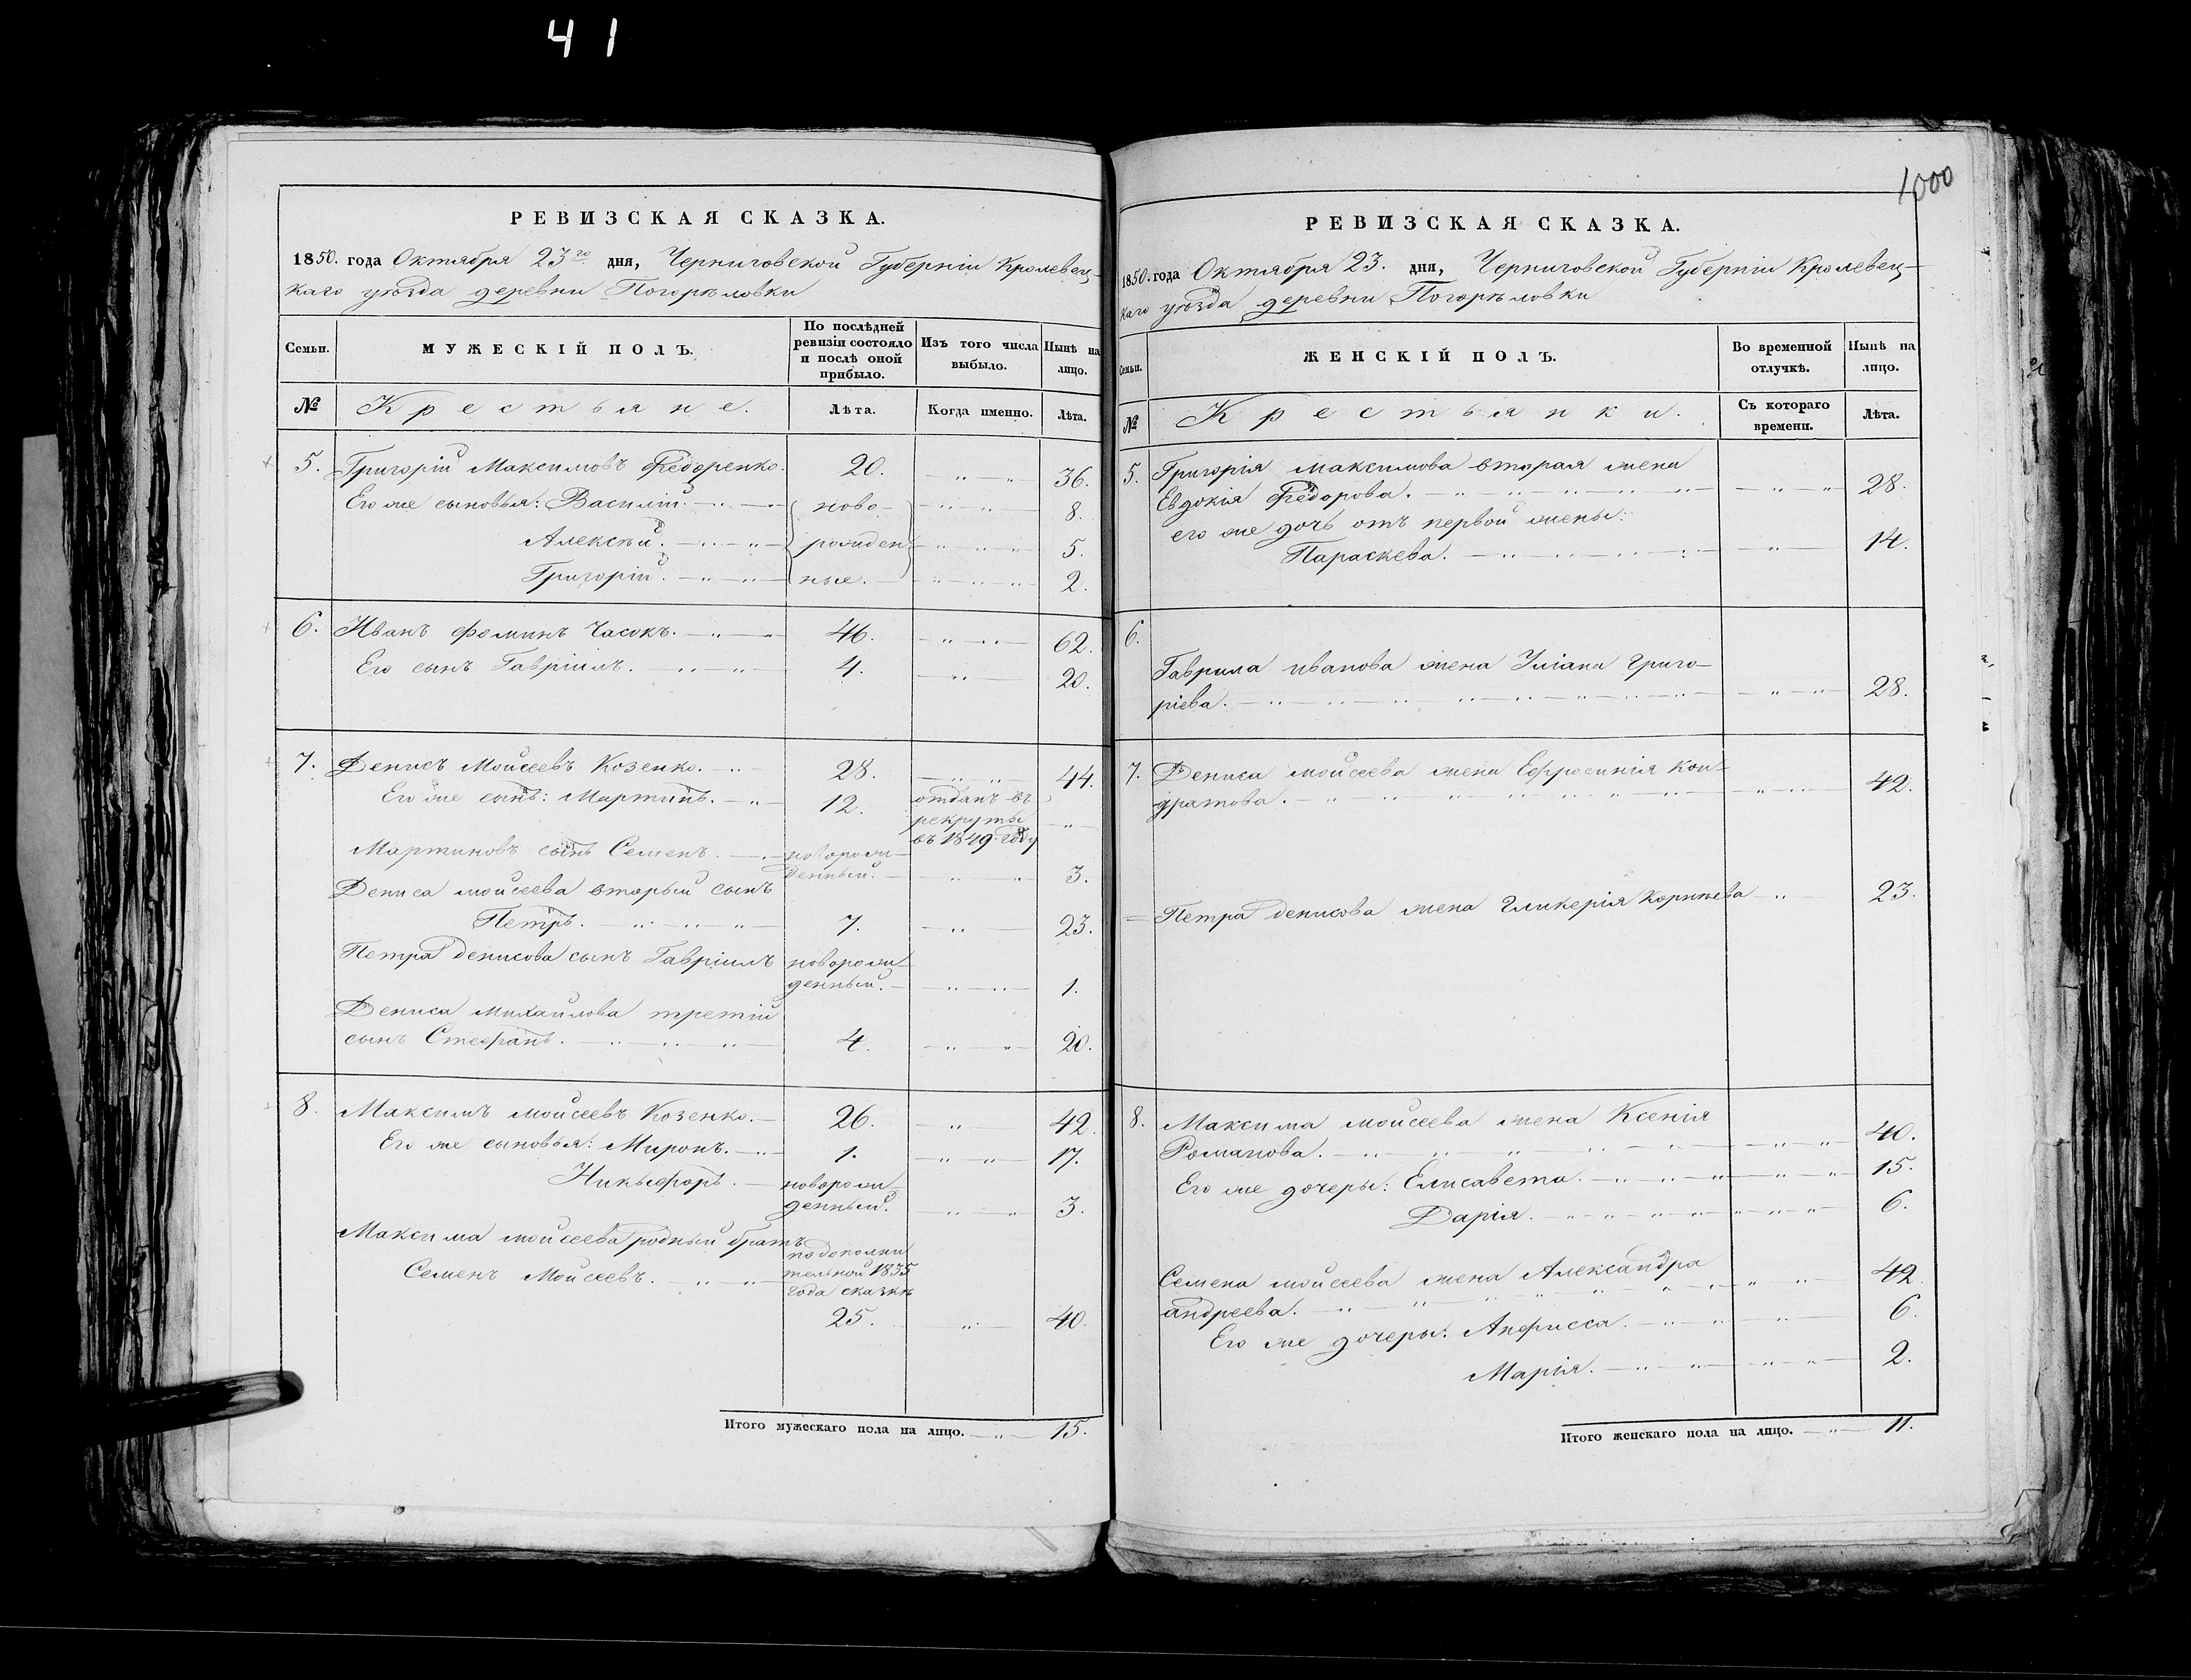 41
РЕВИЗСКАЯ СКАЗКА.
1850. года Октября 23го дня, Черниговской Губерніи Кролевец-
каго уѣзда деревни Погорѣловки
Семьи.
МУЖЕСКІЙ ПОЛЪ.
По послѣдней ревизіи состояло и послѣ оной прибыло.
Изъ того числа выбыло.
Нынѣ на лицо.
№
Крестьяне.
Лѣта.
Когда именно.
Лѣта.
5. Григорій Максимовъ Федоренко. 20. 36.
Его же сыновья: Василій. ново- 8.
Алексѣй. рожден- 5.
Григорій. ные. 2.
6. Иванъ Фоминъ Часокъ. 46. 62.
Его сынъ Гавріилъ. 4. 20.
7. Денисъ Моисеевъ Козенко. 28. 44.
Его же сынъ: Мартинъ. 12. отданъ въ
рекруты
въ 1849. году
Мартиновъ сынъ Семенъ. новорож-
денный. 3.
Дениса моисеева вторый сынъ
Петръ. 7. 23.
Петра денисова сынъ Гавріилъ новорож-
денный. 1.
Дениса михайлова третій
сынъ Стефанъ. 4. 20.
8. Максимъ моисеевъ Козенко. 26. 42.
Его же сыновья: Миронъ. 1. 17.
Никифоръ. новорож-
денный. 3.
Максима моисеева родный братъ
Семенъ Моисеевъ. подополни
тельной 1835
года сказкѣ
25. 40.
Итого мужескаго пола на лицо. 15.
1000
РЕВИЗСКАЯ СКАЗКА.
1850. года Октября 23. дня, Черниговской Губерніи Кролевец-
каго уѣзда деревни Погорѣловки
Семьи.
ЖЕНСКІЙ ПОЛЪ.
Во временной отлучкѣ.
Нынѣ на лицо.
№
Крестьянки.
Съ котораго времени.
Лѣта.
5. Григорія максимова вторая жена
Евдокія Федорова. 28.
его же дочь отъ первой жены:
Параскева. 14.
6.
Гаврила иванова жена Уліана григо-
ріева. 28.
7. Дениса моисеева жена Ефросинія Кон-
дратова. 42.
Петра денисова жена Гликерія Корнѣева 23.
8. Максима моисеева жена Ксенія
Романова. 40.
Его же дочеры: Елисавета. 15.
Дарія. 6.
Семена моисеева жена Александра
андреева. 42.
Его же дочеры: Анфисса. 6.
Марія. 2.
Итого женскаго пола на лицо. 11.